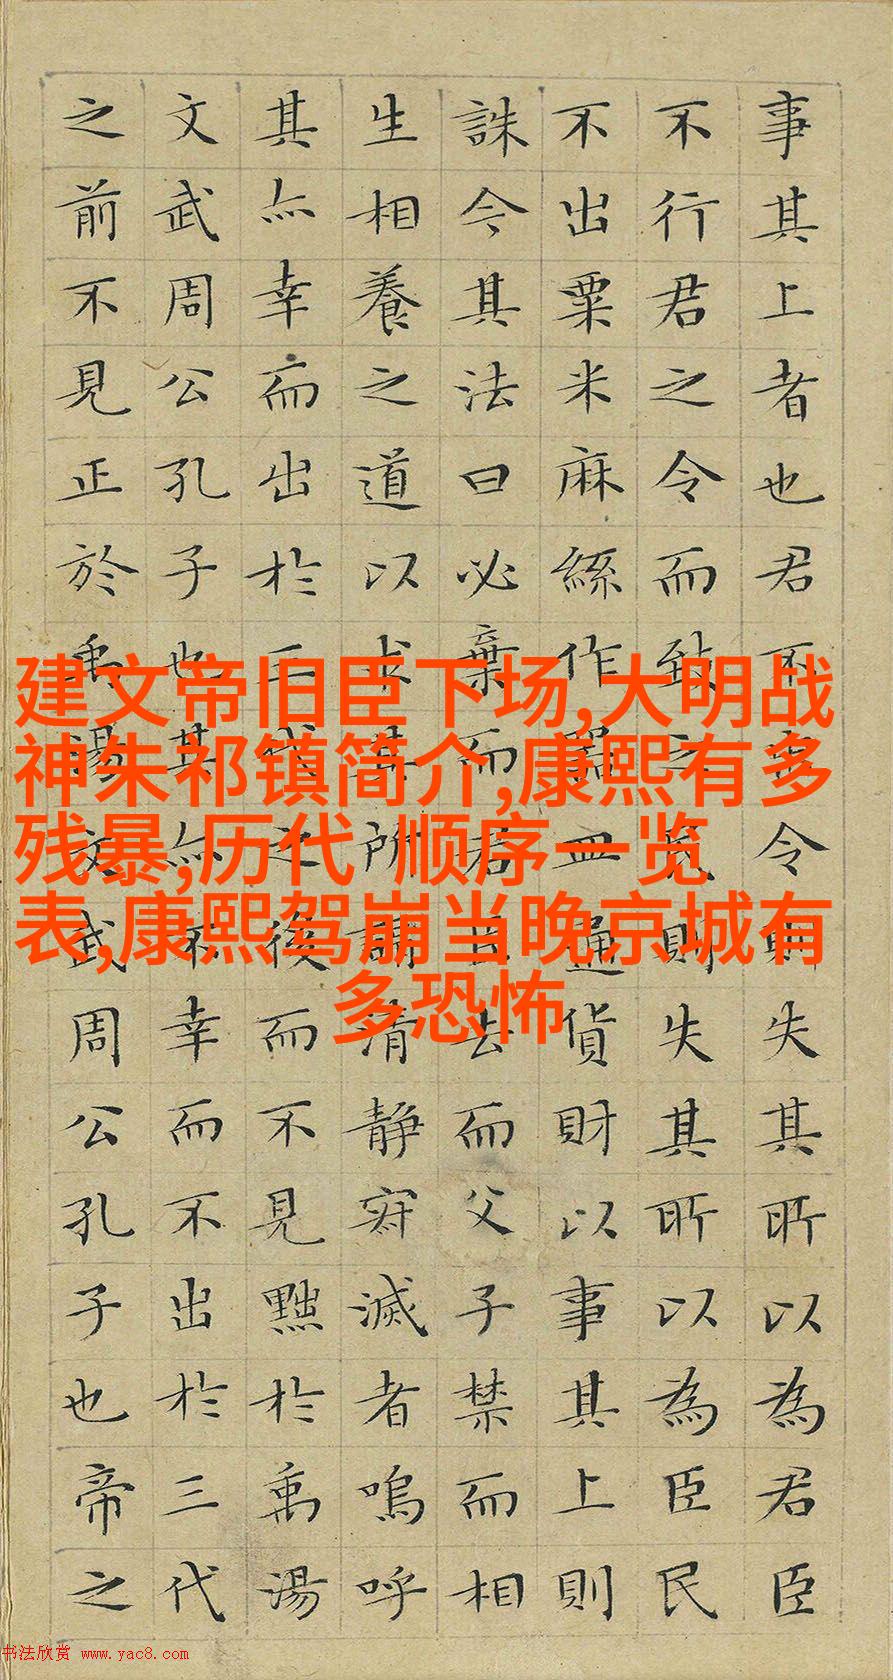 事其上者也君不出令則失其所以為君臣
不行君之令而致之則失其所以為臣民
不出粟米麻絲作器皿通貨財以事其上則
誅今其法曰必棄而君臣去而父子禁而相
生相養之道以求其所謂清靜寂滅者嗚呼
其亦幸而出於三代之後而不見黜於禹湯
文武周公孔子也其亦不幸而不出於三代
之前不見正於禹湯文武周公孔子也帝之
建文帝旧臣下场,大明战
神朱祁镇简介,康熙有多
残暴,历代 顺序一览
表,康熙驾崩当晚京城有
多恐怖
书法欣赏 www.yac8.com